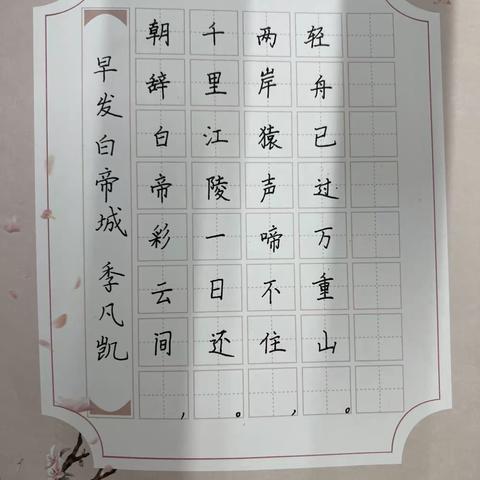 早发白帝城 季凡凯
朝辞白帝彩云间，
千里江陵一日还。
两岸猿声啼不住，
轻舟已过万重山。